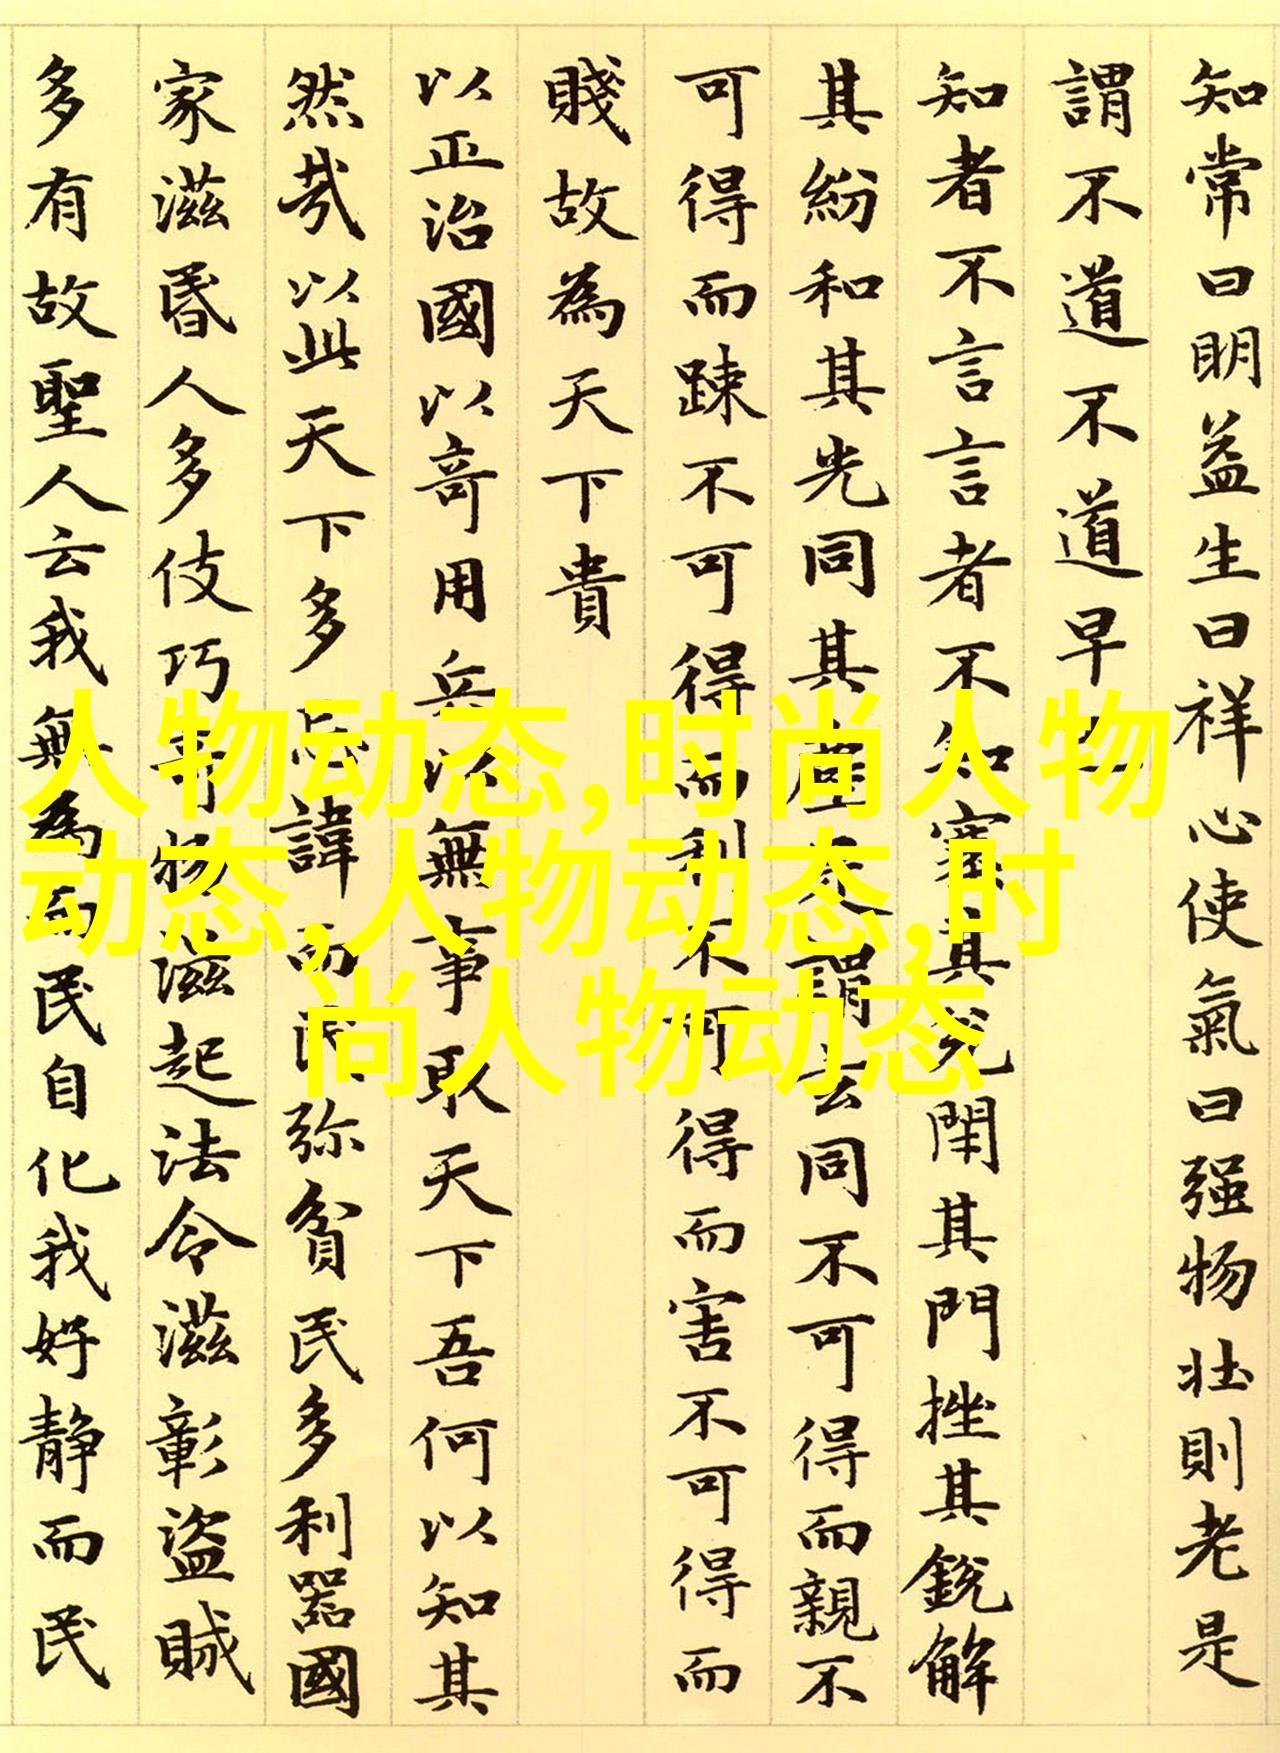 知常曰明益生曰祥心使氣曰强物壯則老是
謂不道不道早已
知者不言言者不知塞其兌閉其門挫其銳解
其紛和其光同其塵是謂玄同不可得而親不
可得而踈不可得而利不可得而害不可得而
賤故為天下貴
以正治國以奇用兵以無事取天下吾何以知其
然哉以此天下多忌諱而民弥貧民多利器國
家滋昬人多伎巧奇物滋起法令滋彰盜賊
多有故聖人云我無為而民自化我好靜而民
人物动态,时尚人物
动态,人物动态,时
尚人物动态